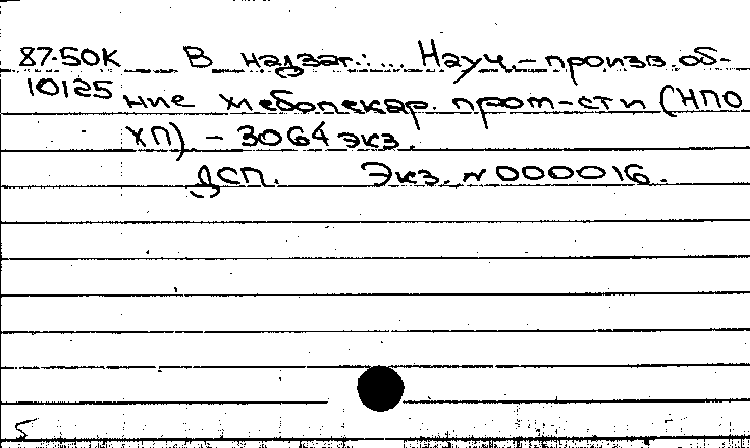 87-50К В надзаг.: ... Науч.-произв. об-
10125 ние хлебопекар. пром-сти (НПО
ХП) – 3064 экз.
ДСП. Экз. № 000016.
5